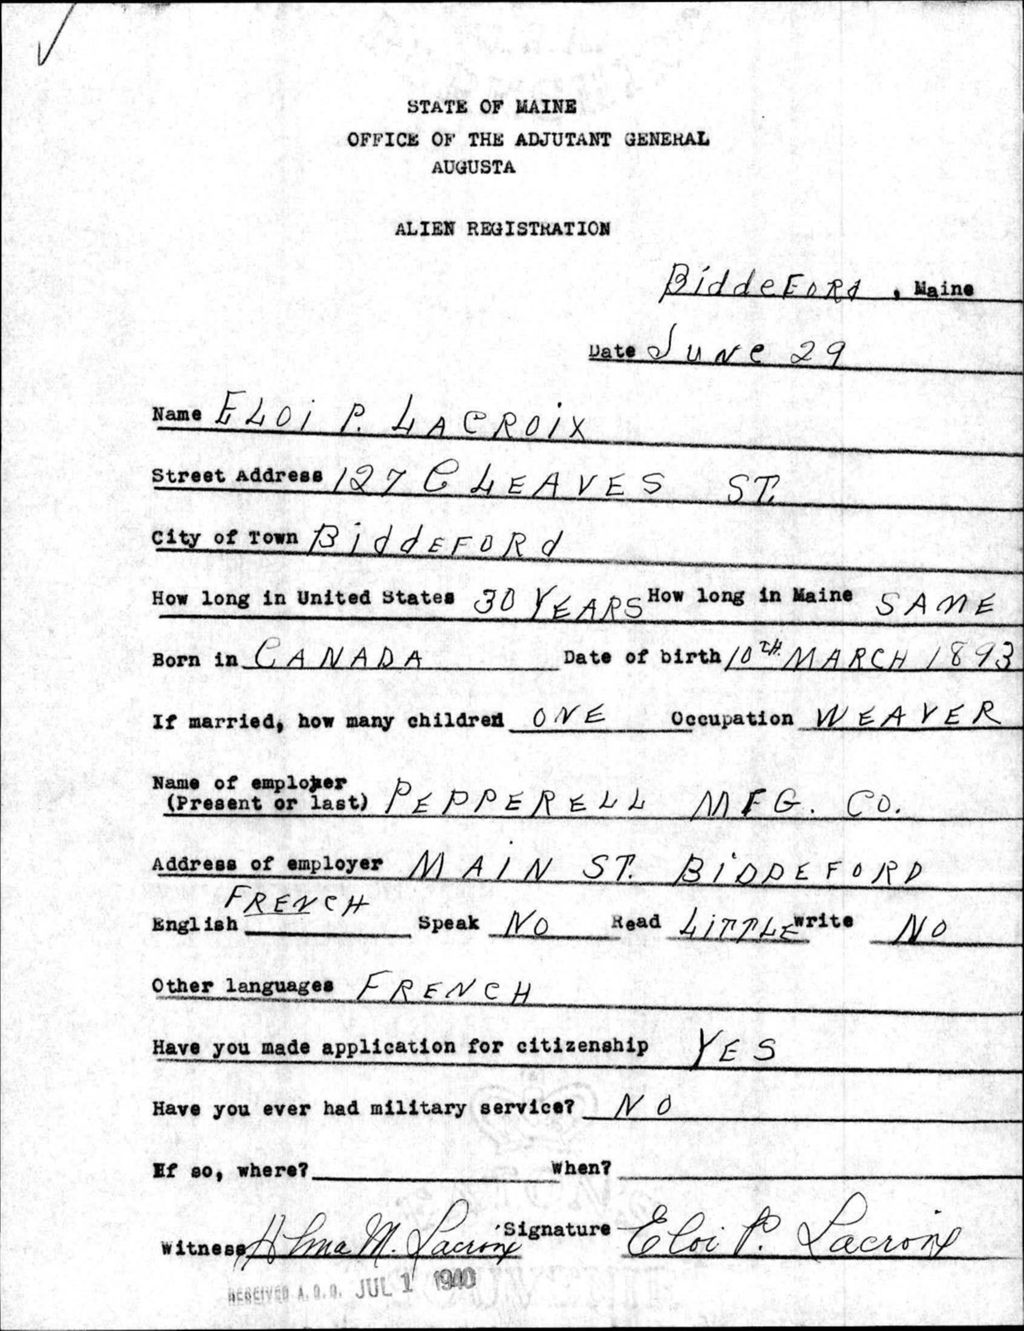 STATE OF MAINE
OFFICE OF THE ADJUTANT GENERAL
AUGUSTA
ALIEN REGISTRATION
BiddeFORd, Maine
Date JUNe 29
Name ELOi P. LACROiX
Street Address 127 CLEAVES ST.
City of Town BiddEFORd
How long in United States 30 YEARS How long in Maine SAME
Born in CANADA Date of birth 10TH. MARCH 1893
If married, how many children ONE Occupation WEAVER
Name of employer
(Present or last) PEPPERELL MFG. CO.
Address of employer MAIN ST. BiDDEFORD
FRENCH
English Speak NO Read LiTTLE Write NO
Other languages FRENCH
Have you made application for citizenship YES
Have you ever had military service? NO
If so, where? When?
Witness Alma M. Lacroix Signature Eloi P. Lacroix
RECEIVED A.G.O. JUL 1 1940